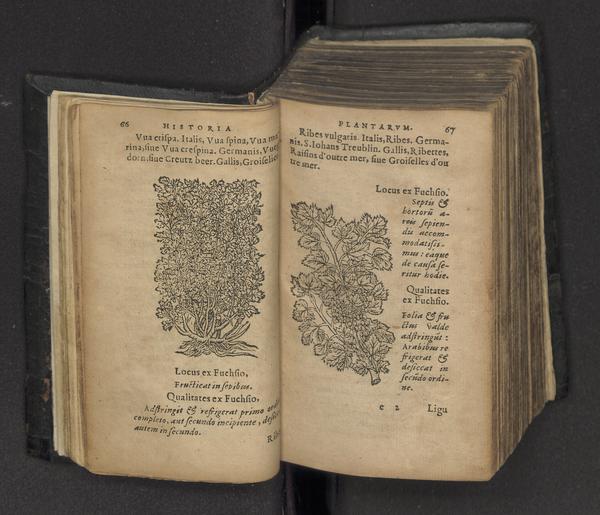 66
HISTORIA
Vua crispa. Italis, Vua spina, Vua ma
rina, siue Vua crespina. Germanis,
dorn, siue Creutz beer. Gallis, Groiselier
Locus ex Fuchsio,
Fructicat in sepibus.
Qualitates ex Fuchsio,
Adstringit & refrigerat primo ordi
completo, aut secundo incipiente, desic
autem in secundo.
Rib
PLANTARVM.
67
Ribes vulgaris. Italis, Ribes. Germa-
nis, S. Iohans Treublin. Gallis, Ribettes,
Raisins d'outre mer, siue Groiselles d'ou
tre mer.
Locus ex Fuchsio.
Septis &
hortorū a-
reis sepien-
dis accom-
modatissi-
mus: eaque
de causa se-
ritur hodie.
Qualitates
ex Fuchsio.
Folia & fru
ctus valde
adstringūt:
Arabibus re
frigerat &
desiccat in
secūdo ordi-
ne.
e 2
Ligu